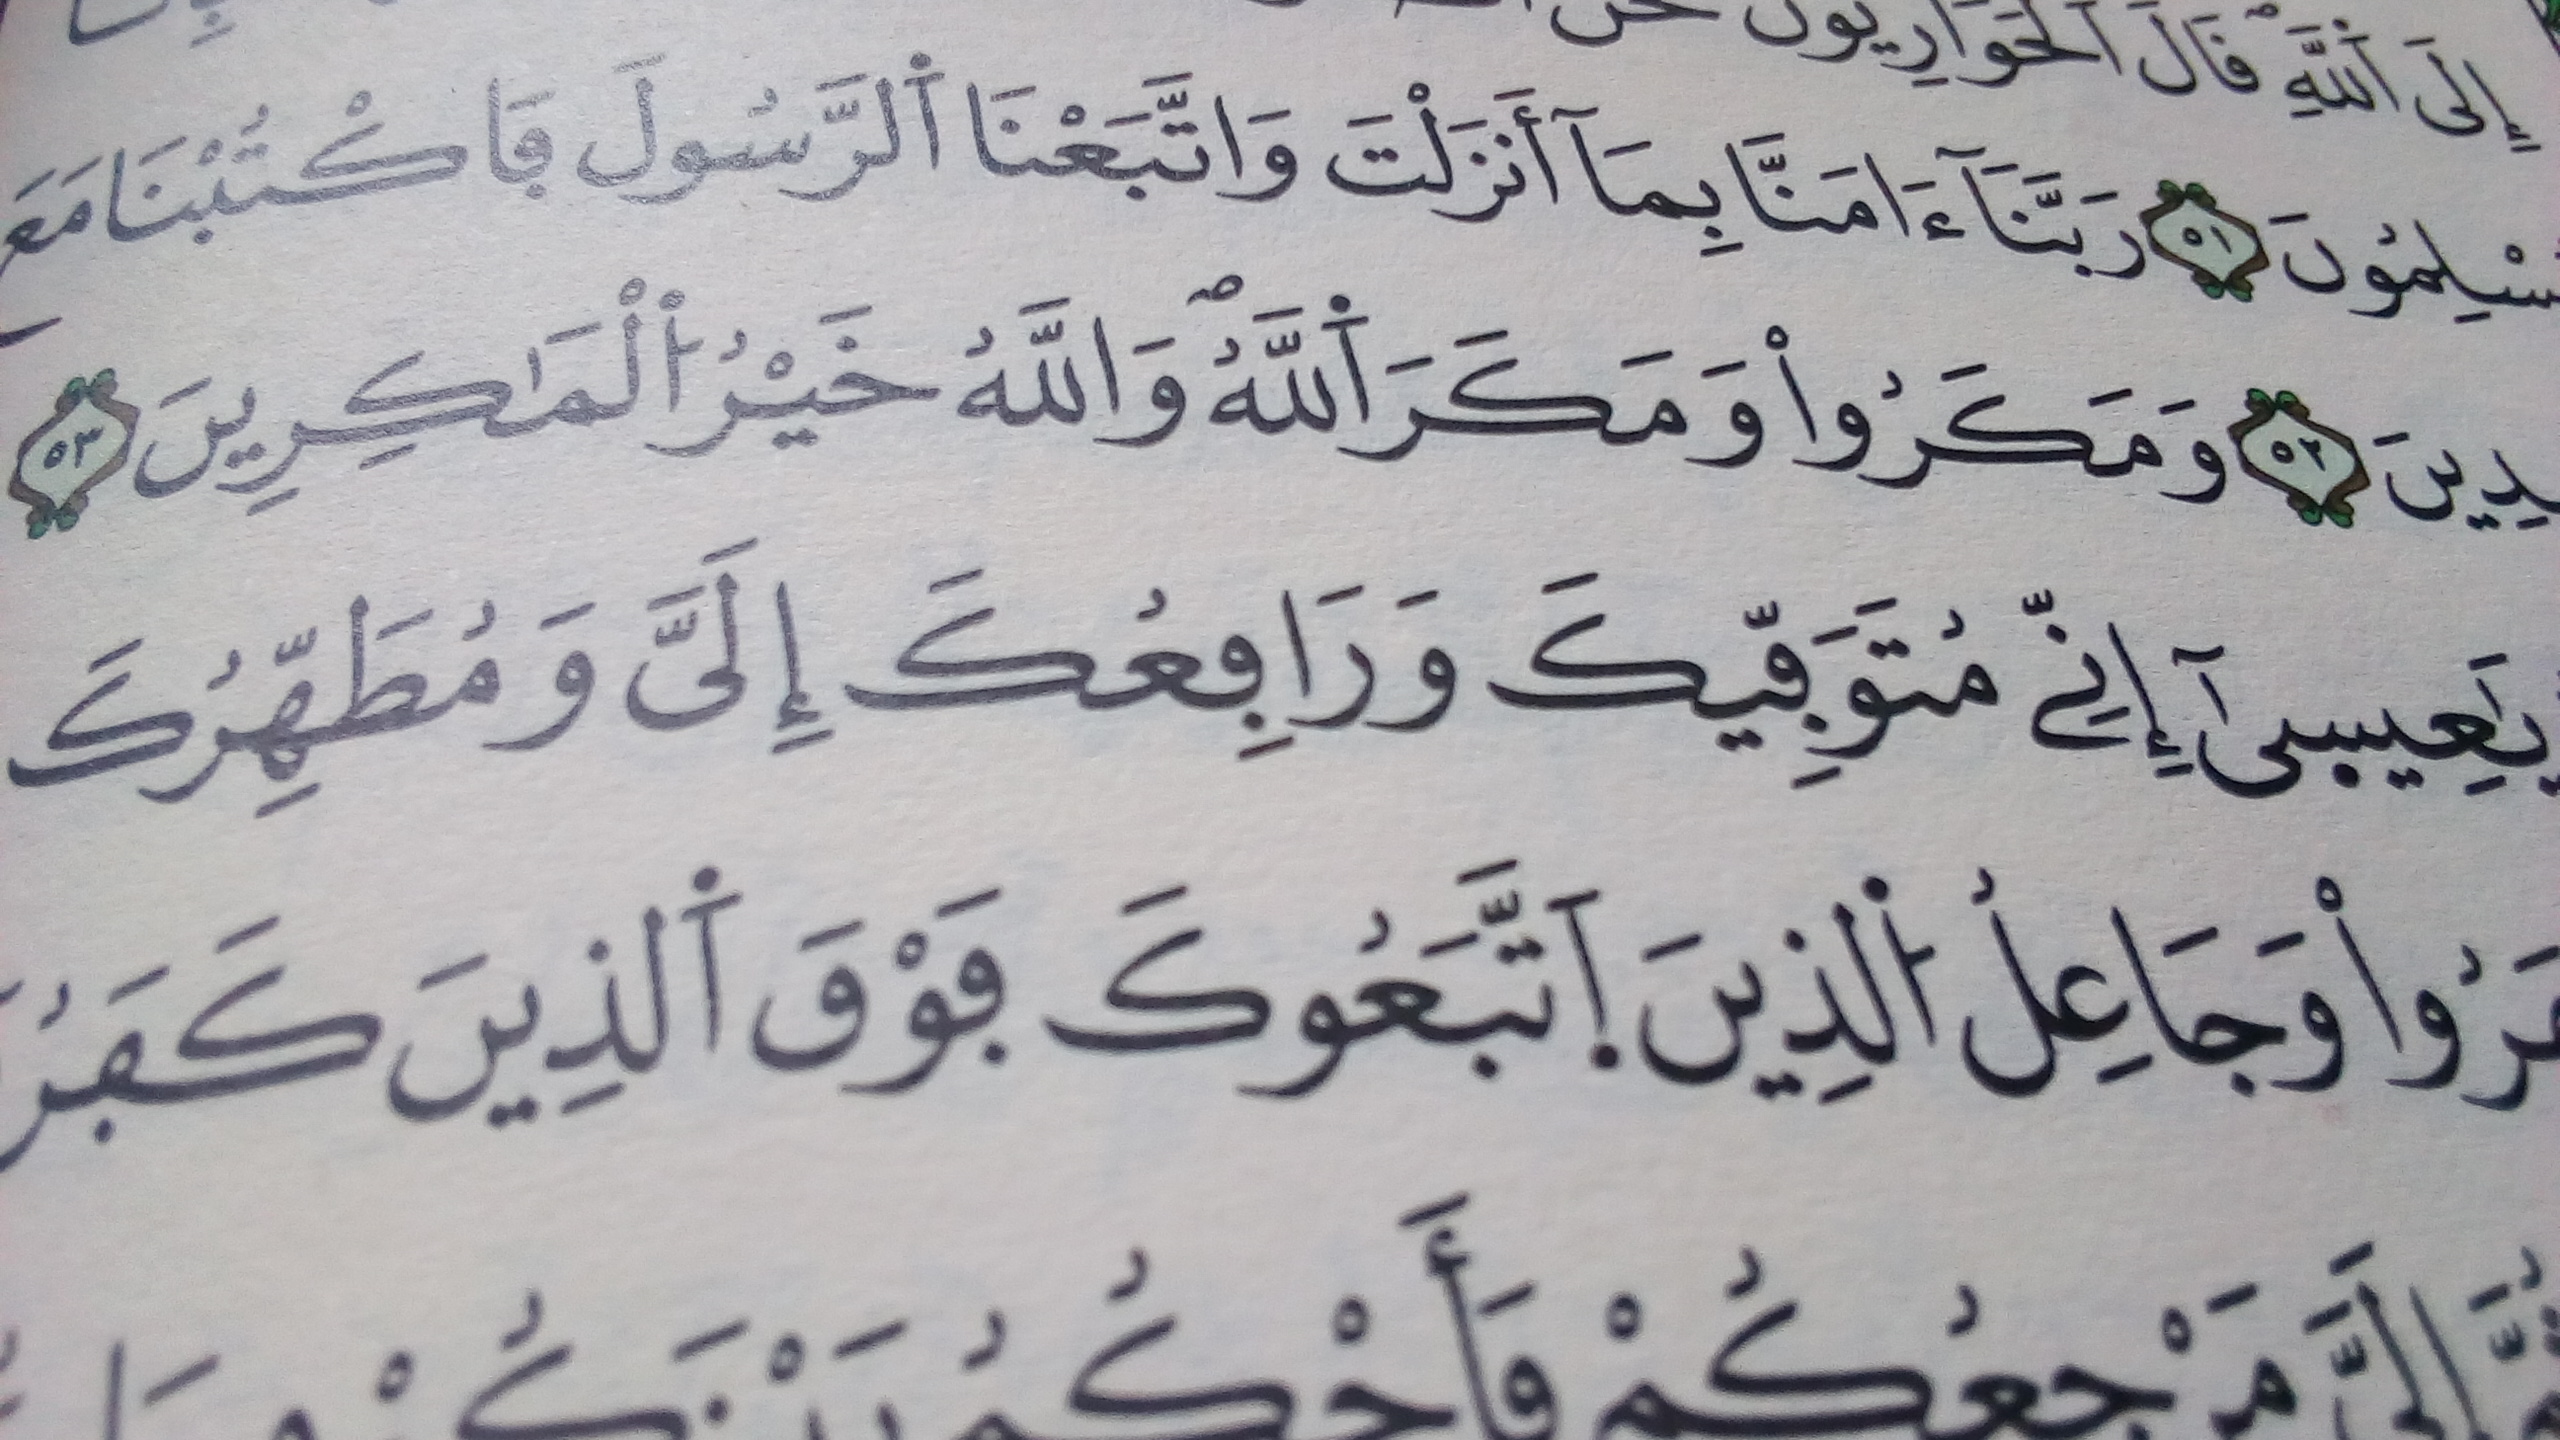 إِلَى ٱللَّهِۖ قَالَ ٱلْحَوَارِيُّونَ نَحْنُ
مُسْلِمُونَ ٥١ رَبَّنَآ ءَامَنَّا بِمَآ أَنزَلْتَ وَاتَّبَعْنَا ٱلرَّسُولَ فَاكْتُبْنَا مَعَ
ـدِينَ ٥٢ وَمَكَرُواْ وَمَكَرَ ٱللَّهُۖ وَاللَّهُ خَيْرُ ٱلْمَٰكِرِينَ ٥٣
يَٰعِيسىٰٓ إِنِّي مُتَوَفِّيكَ وَرَافِعُكَ إِلَىَّ وَمُطَهِّرُكَ
ـفَرُواْ وَجَاعِلُ ٱلذِينَ ٱتَّبَعُوكَ فَوْقَ ٱلذِينَ كَفَرُ
ثُمَّ إِلَىَّ مَرْجِعُكُمْ فَأَحْكُمُ بَيْنَكُمْ